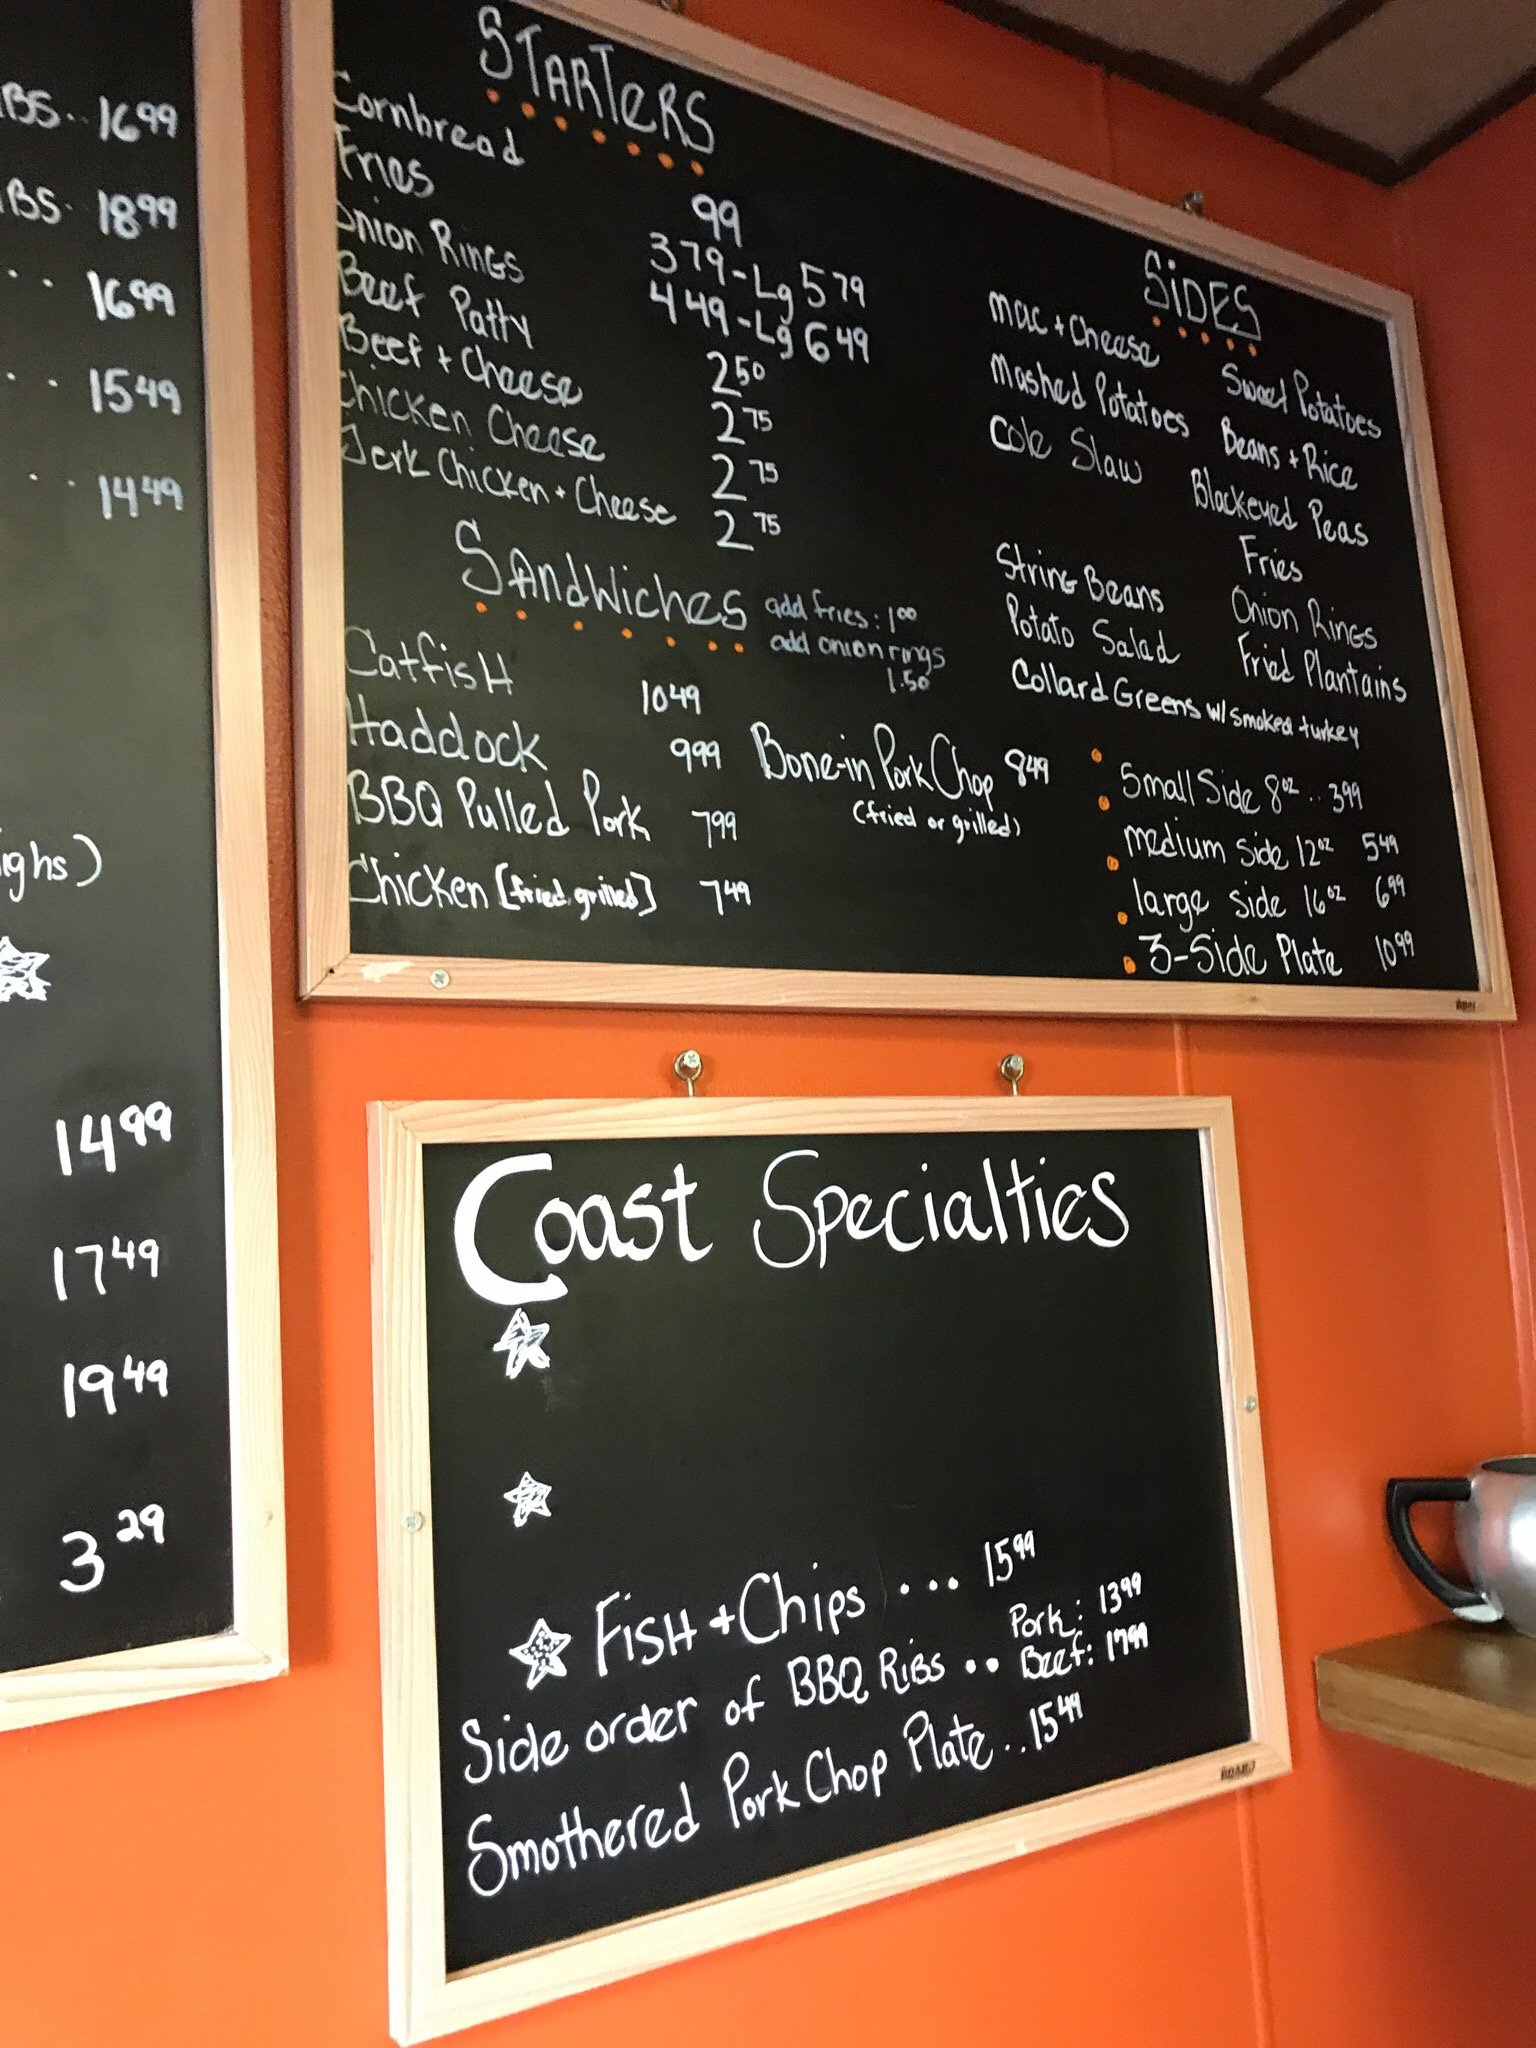 BS.. 16 99
BS. 18 99
. . 16 99
. . 15 49
. . . 14 49
ighs)
14 99
17 49
19 49
3 29
STARTERS
Cornbread 99
Fries 3 79 - Lg 5 79
Onion Rings 4 49 - Lg 6 49
Beef Patty 2 50
Beef + Cheese 2 75
Chicken Cheese 2 75
Jerk Chicken + Cheese 2 75
SANDWICHES
add fries: 1 00
add onion rings
1.50
CatfisH 10 49
Haddock 9 99
BBQ Pulled Pork 7 99
Chicken [fried, grilled] 7 49
Bone-in Pork Chop 8 49
(fried or grilled)
SIDES
Mac + Cheese Sweet Potatoes
Mashed Potatoes Beans + Rice
Cole Slaw Blackeyed Peas
String Beans Fries
Potato Salad Onion Rings
Fried Plantains
Collard Greens w/ smoked turkey
Small Side 8 oz .. 3 99
medium side 12 oz 5 49
large side 16 oz 6 99
3-Side Plate 10 99
Coast Specialties
Fish + Chips ... 15 99
Side order of BBQ Ribs .. Pork: 13 99
Beef: 17 99
Smothered Pork Chop Plate .. 15 49